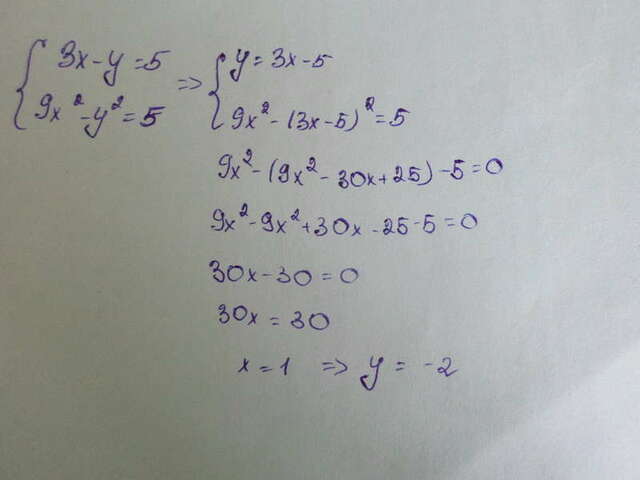 { 3x - y = 5 => { y = 3x - 5
9x² - y² = 5 9x² - (3x - 5)² = 5
9x² - (9x² - 30x + 25) - 5 = 0
9x² - 9x² + 30x - 25 - 5 = 0
30x - 30 = 0
30x = 30
x = 1 => y = -2